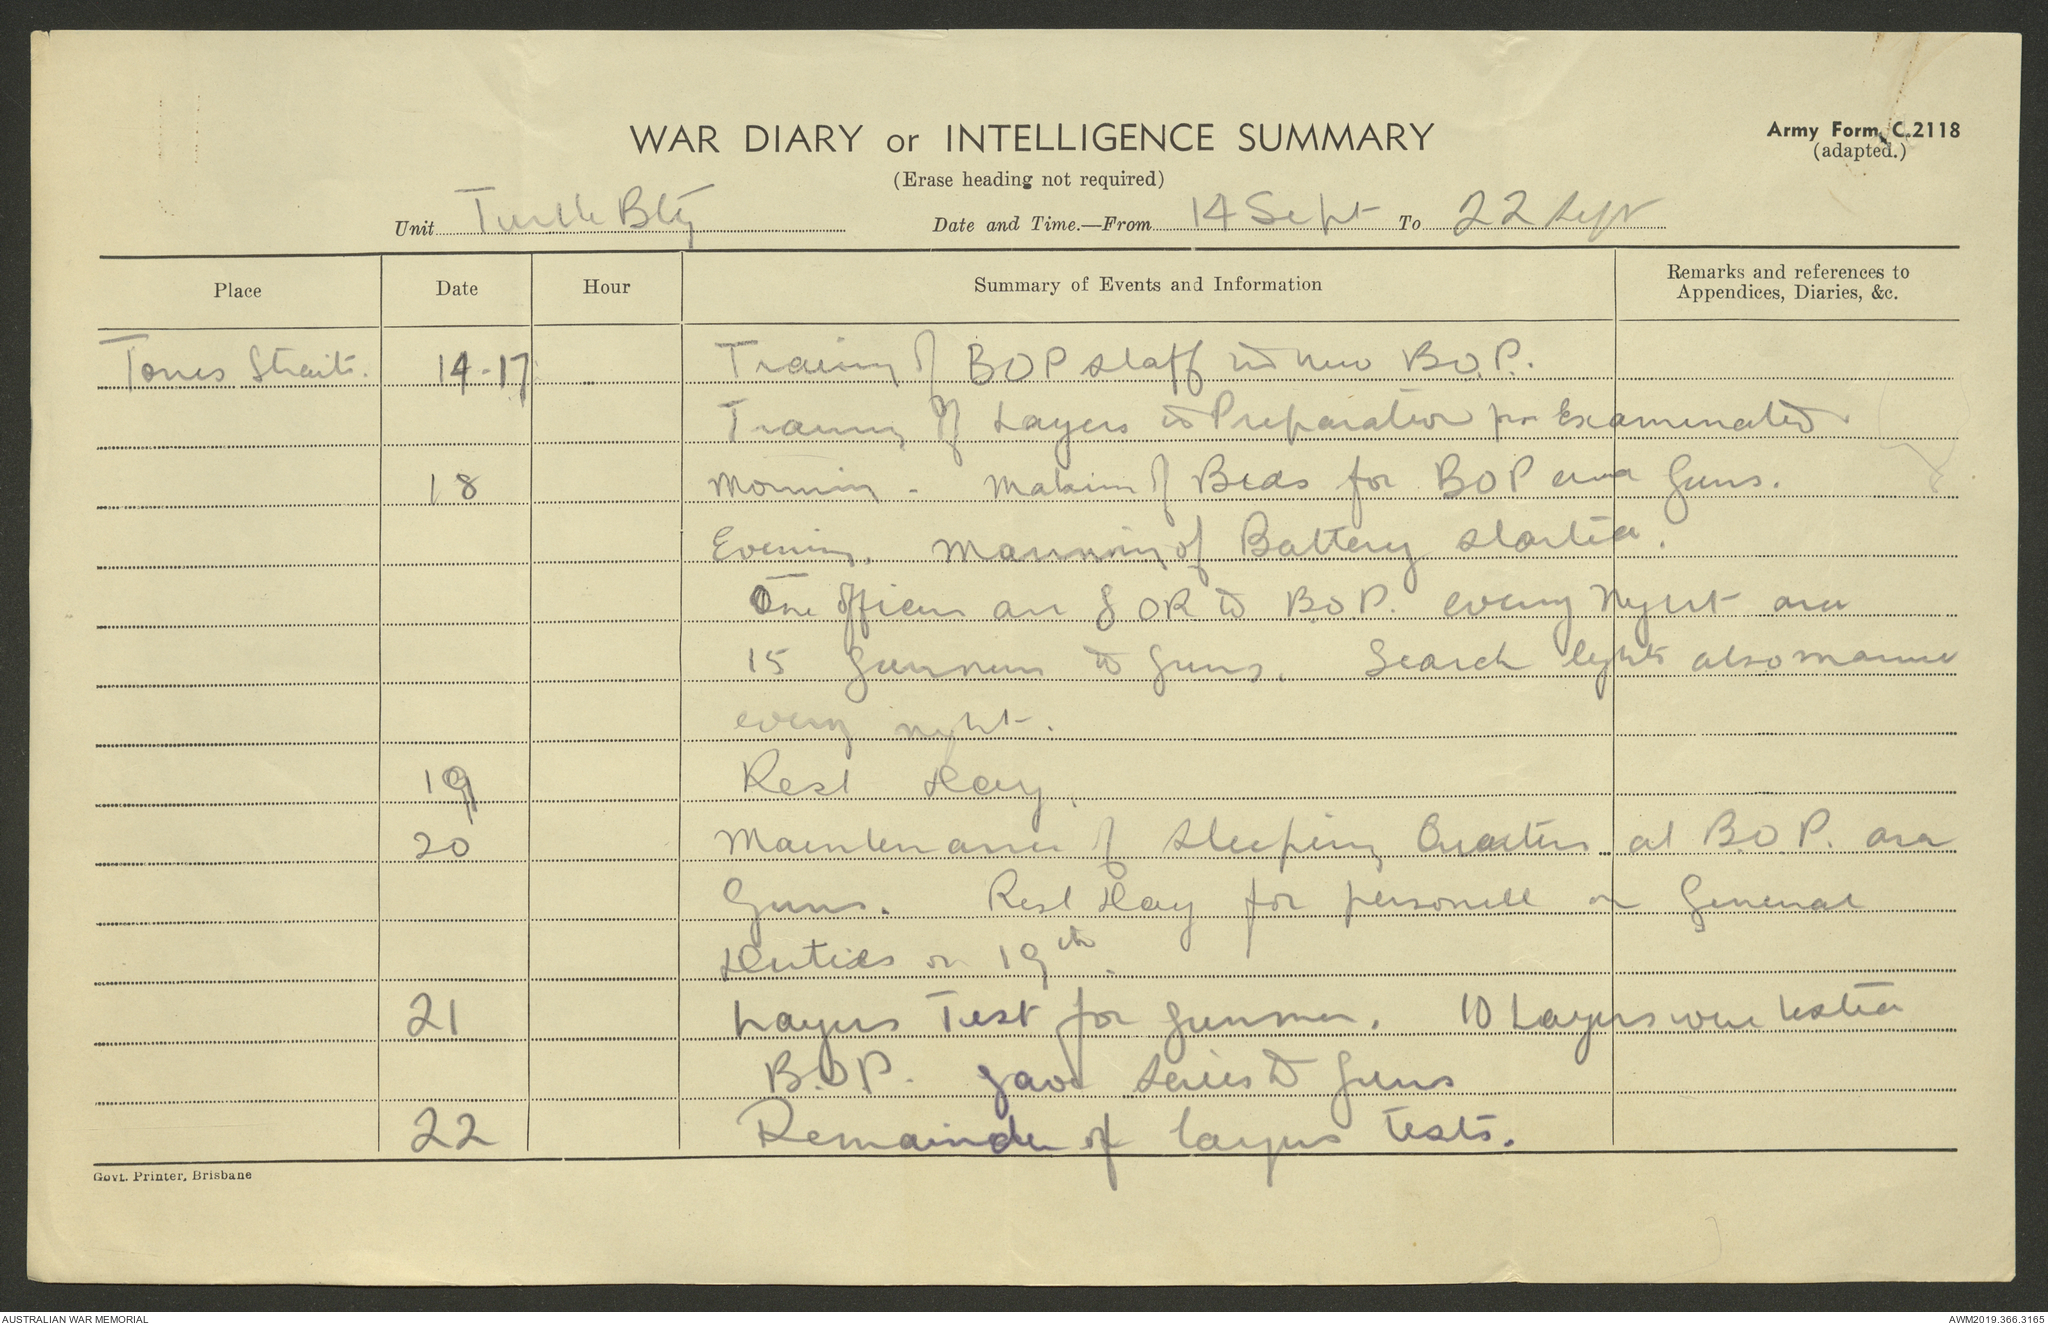 WAR DIARY or INTELLIGENCE SUMMARY
Army Form C.2118
(adapted.)
(Erase heading not required)
Unit Turtle Bty Date and Time.—From 14 Sept To 22 Sept
Place Date Hour Summary of Events and Information Remarks and references to Appendices, Diaries, &c.
Torres Strait. 14-17 Training of BOP staff in new B.O.P.
Training of Layers & Preparation for Examination
18 Morning - Making of Beds for BOP and Guns.
Evening. Manning of Battery started.
One Officer and 8 OR to B.O.P. every Night and
15 Gunners to Guns. Search lights also manned
every night.
19 Rest Day.
20 Maintenance of Sleeping Quarters at B.O.P. and
Guns. Rest Day for personell on General
Duties on 19th.
21 Layers Test for gunners. 10 Layers were tested
B.O.P. gave series to Guns
22 Remainder of layers tests.
Govt. Printer, Brisbane
AUSTRALIAN WAR MEMORIAL
AWM2019.366.3165